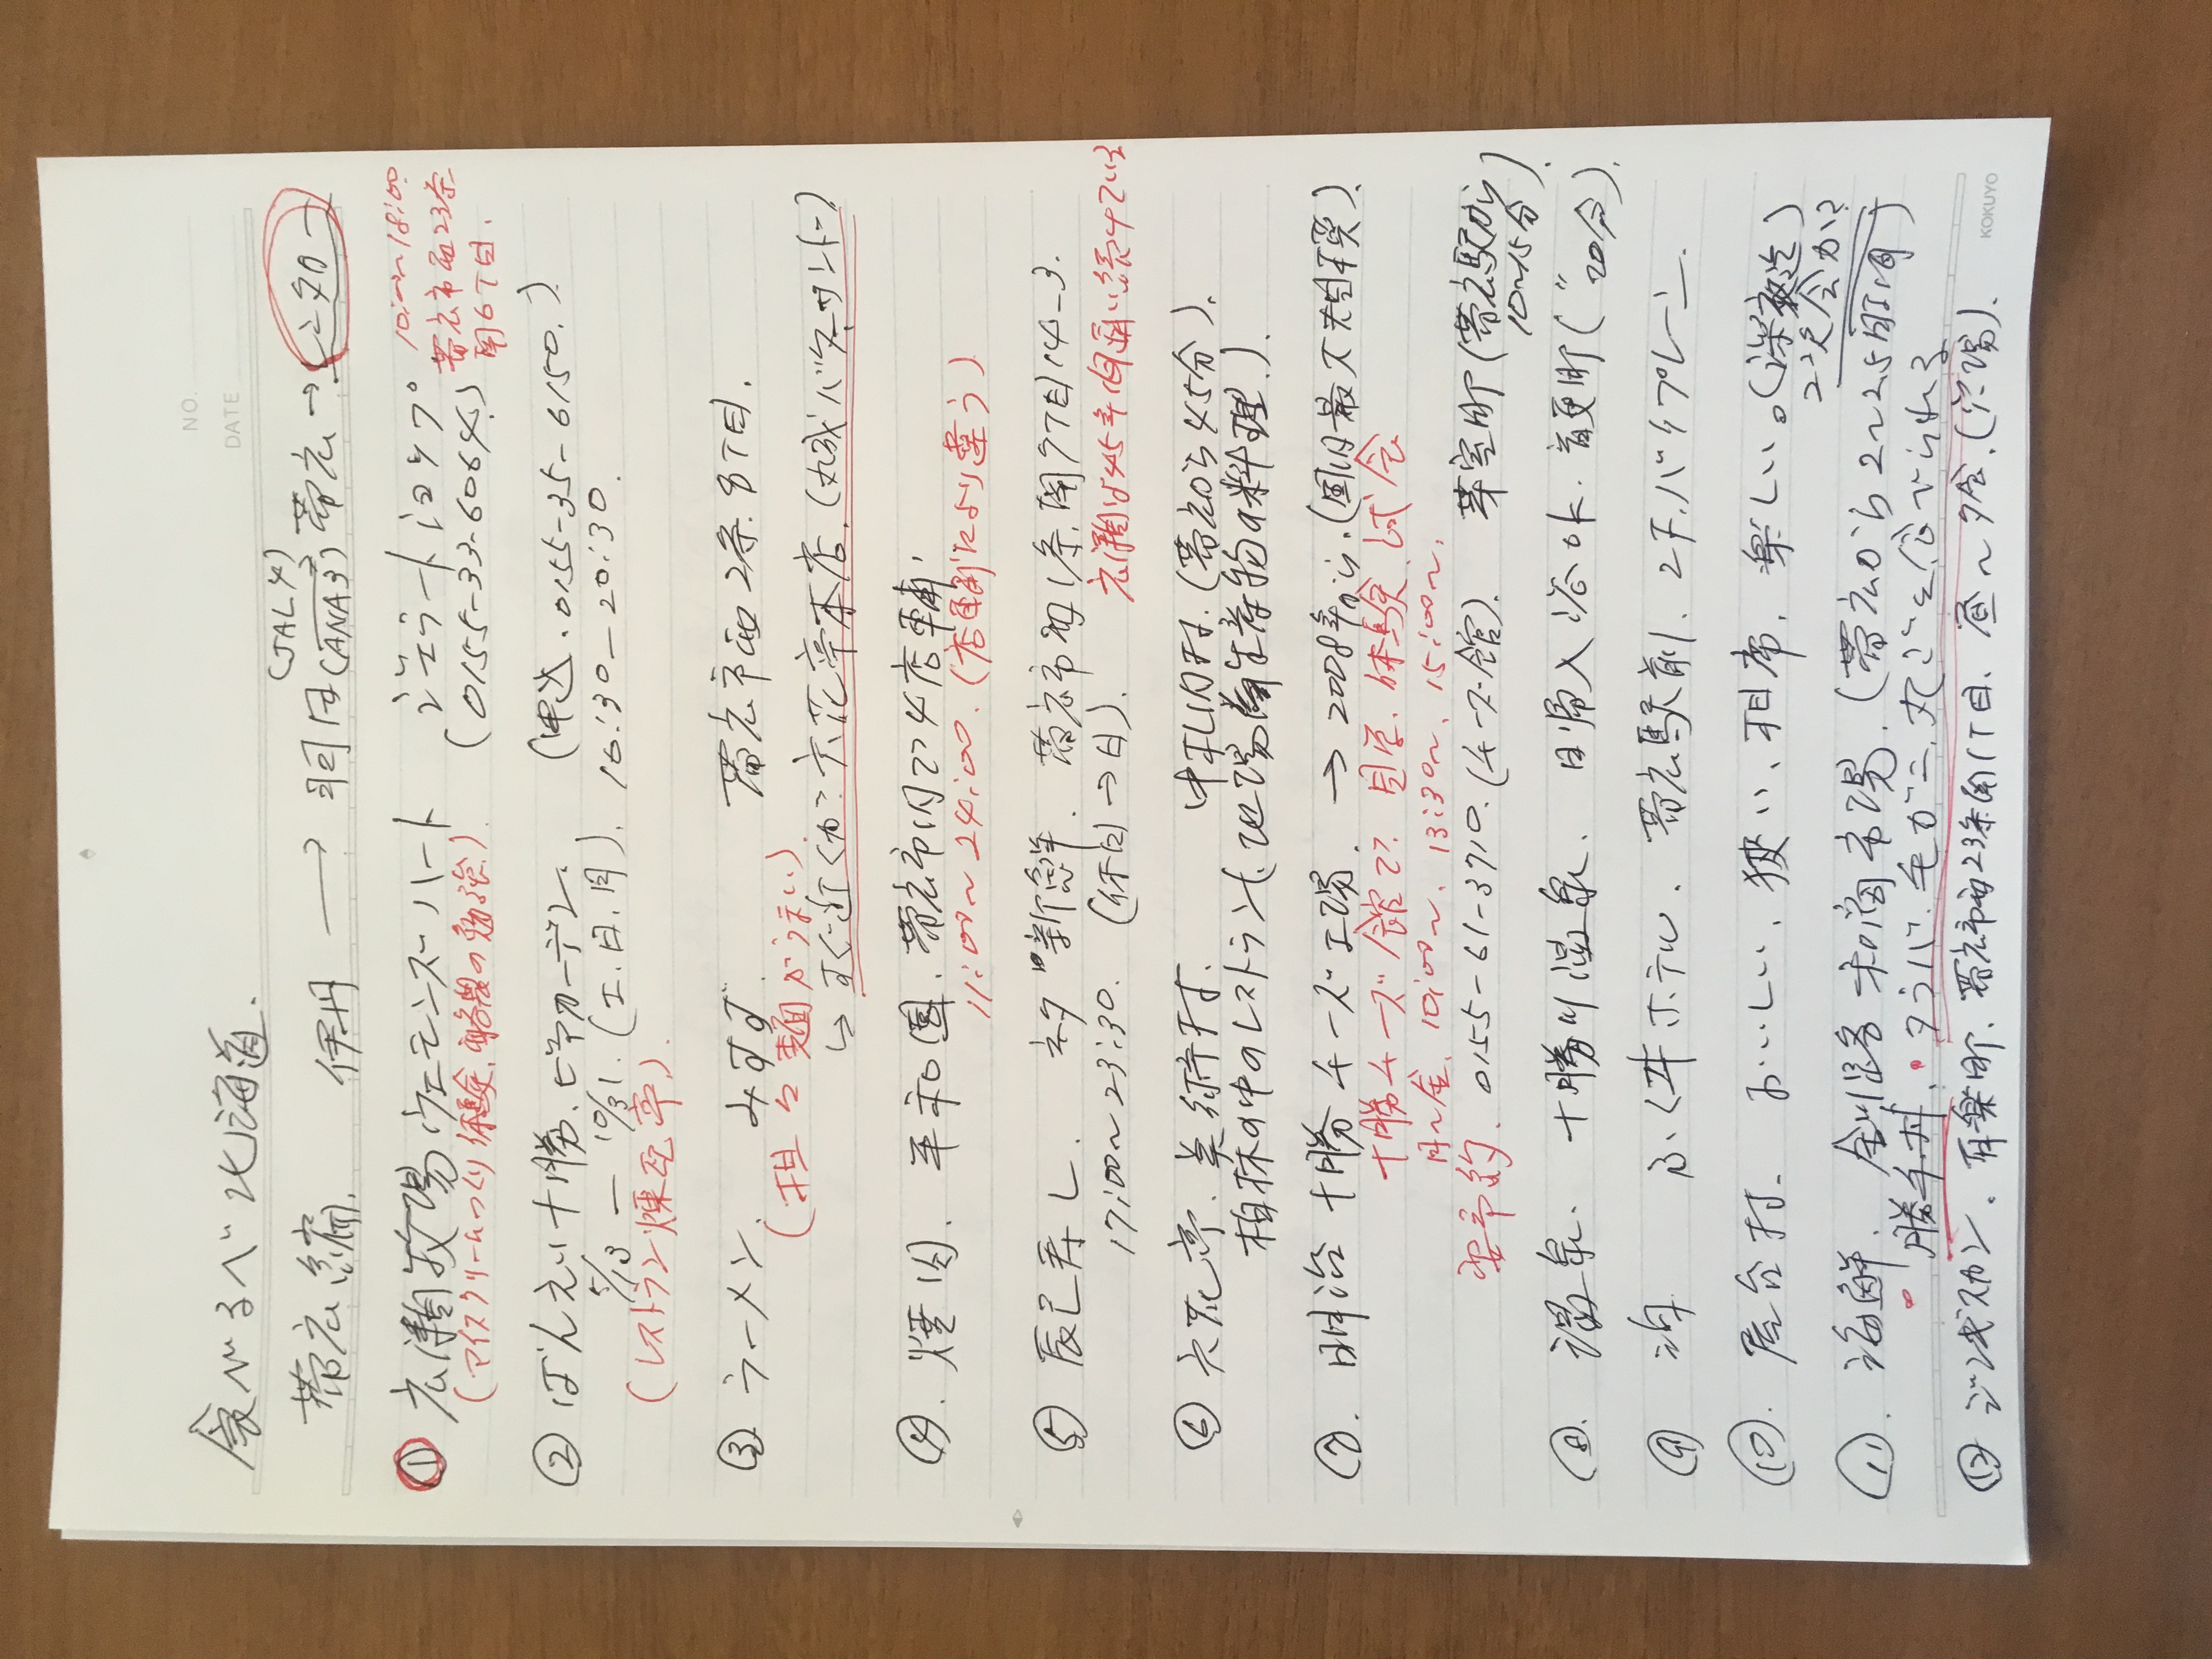 NO.
DATE
食べるべ北海道.
帯広編. 伊丹 → 羽田 (JAL4) (ANA3) → 帯広 → レンタカー
① 広瀬牧場 ウエモンズハート ジェラートショップ 10:00〜18:00
(アイスクリームつくり体験、酪農の勉強) (0155-33-6064) 帯広市西23条
南6丁目.
② ばんえい十勝、ビアガーデン. (申込・0155-35-6150.)
5/13 — 10/31. (土.日.月). 16:30—20:30.
(レストラン煉瓦亭).
③ ラーメン. みすず. 帯広市西2条.8丁目.
(担々麺がうまい).
↳ すぐ近くが 六花亭本店. (丸成バターサンドー)
④. 焼肉. 平和園. 帯広市内で4店舗.
11:00〜24:00. (店舗により違う)
⑤ 辰巳寿し. ネタ新鮮. 帯広市西1条.南9丁目14-3.
17:00〜23:30. (休日→日). 広瀬は45年間通い続けている
⑥ 六花亭.美術村. 中札内村.(帯広から45分).
柏林の中のレストラン(地場産生産物の料理.).
⑦. 明治 十勝チーズ工場. → 2008年から.(国内最大規模).
十勝チーズ館で. 見学.体験.試食
月〜金. 10:00〜. 13:30〜. 15:00〜.
要予約. 0155-61-3710.(チーズ館). 芽室町(帯広駅から
10〜15分).
⑧. 温泉. 十勝川温泉. 日帰入浴ok. 音更町(〃20分).
⑨ 泊 ふく井ホテル. 帯広駅前. 2F.バイプレーン.
⑩. 屋台村. おいしい、狭い、相席、楽しい。(深夜迄)
2次会か?
⑪. 海鮮. 釧路和商市場. (帯広から2〜2.5時間)
・勝手丼. ・タラバ.毛ガニ.丸ごと食べられる
⑫ ジンギスカン. 有楽町. 帯広市西23条南1丁目. 昼〜夕食.(穴場).
KOKUYO